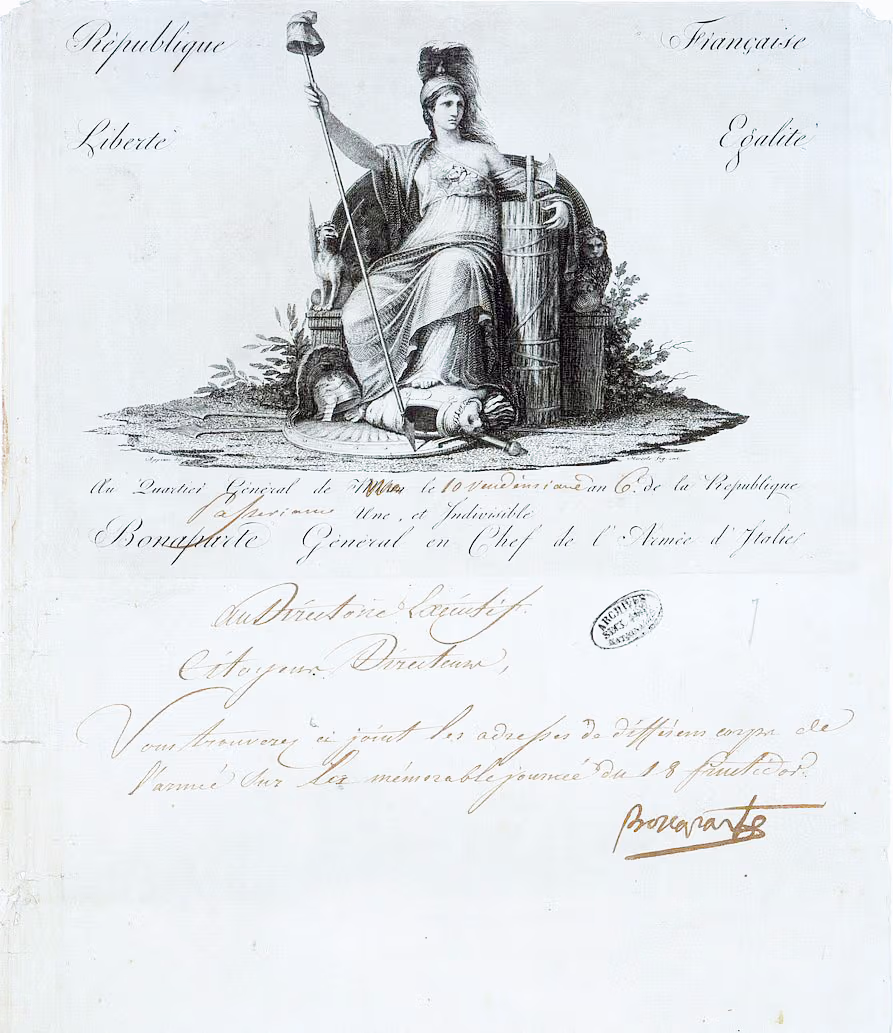 République Française
Liberté Egalité
Au Quartier Général de le 10 Vendémiaire an 6.e de la République
Passeriano Une, et Indivisible
Bonaparte Général en Chef de l'Armée d'Italie
Au Directoire Exécutif.
Citoyens Directeurs,
Vous trouverez ci joint les adresses de différens corps de
l'armée sur les mémorable journée du 18 fructidor.
Bonaparte
ARCHIVES
NATIONALES